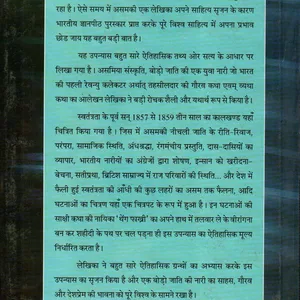 रहा है। ऐसे समय में असमकी एक लेखिका अपने साहित्य सृजन के कारण
भारतीय ज्ञानपीठ पुरस्कार प्राप्त करके पूरे विश्व साहित्य में अपना प्रभाव
छोड जाय यह बहुत बड़ी बात है।
यह उपन्यास बहुत सारे ऐतिहासिक तथ्य ओर सत्य के आधार पर
लिखा गया है। असमिया संस्कृति, बोड़ो जाति की एक युवा नारी जो भारत
की पहली रेवन्यु कलेक्टर अर्थात् तहसीलदार की गौरव कथा एवम् व्यथा
कथा का आलेखन लेखिका ने बड़ी रोचक शैली और यथार्थ रूप से किया है।
स्वतंत्रता के पूर्व सन् 1857 से 1859 तीन साल का कालखण्ड यहाँ
चित्रित किया गया है। जिस में असमकी नीचली जाति के रीति-रिवाज,
परंपरा, सामाजिक स्थिति, अंधश्रद्धा, रंगमंचीय प्रस्तुति, दास-दासियों का
व्यापार, भारतीय नारीयों का अंग्रेजों द्वारा शोषण, इन्सान को खरीदना-
बेचना, सतीप्रथा, ब्रिटिश साम्राज्य में राज परिवारों की स्थिति... और देश में
फैली हुई स्वतंत्रता की आँधी की कुछ लहरों का असम तक फैलना, आदि
घटनाओं का चित्रण यहाँ एक चित्रपट के रूप में हुआ है। इन घटनाओं की
साक्षी कथा की नायिका 'थेंग फाख्री' का अपने हाथ में तलवार ले के वीरांगना
बन कर शहीदी के पथ पर चल पड़ना ही इस उपन्यास का ऐतिहासिक मूल्य
निर्धारित करता है।
लेखिका ने बहुत सारे ऐतिहासिक ग्रन्थों का अभ्यास करके इस
उपन्यास का सृजन किया है और एक बोड़ो जाति की नारी का साहस, गौरव
और देशप्रेम की भावना को पूरे विश्व के सामने रखा है।